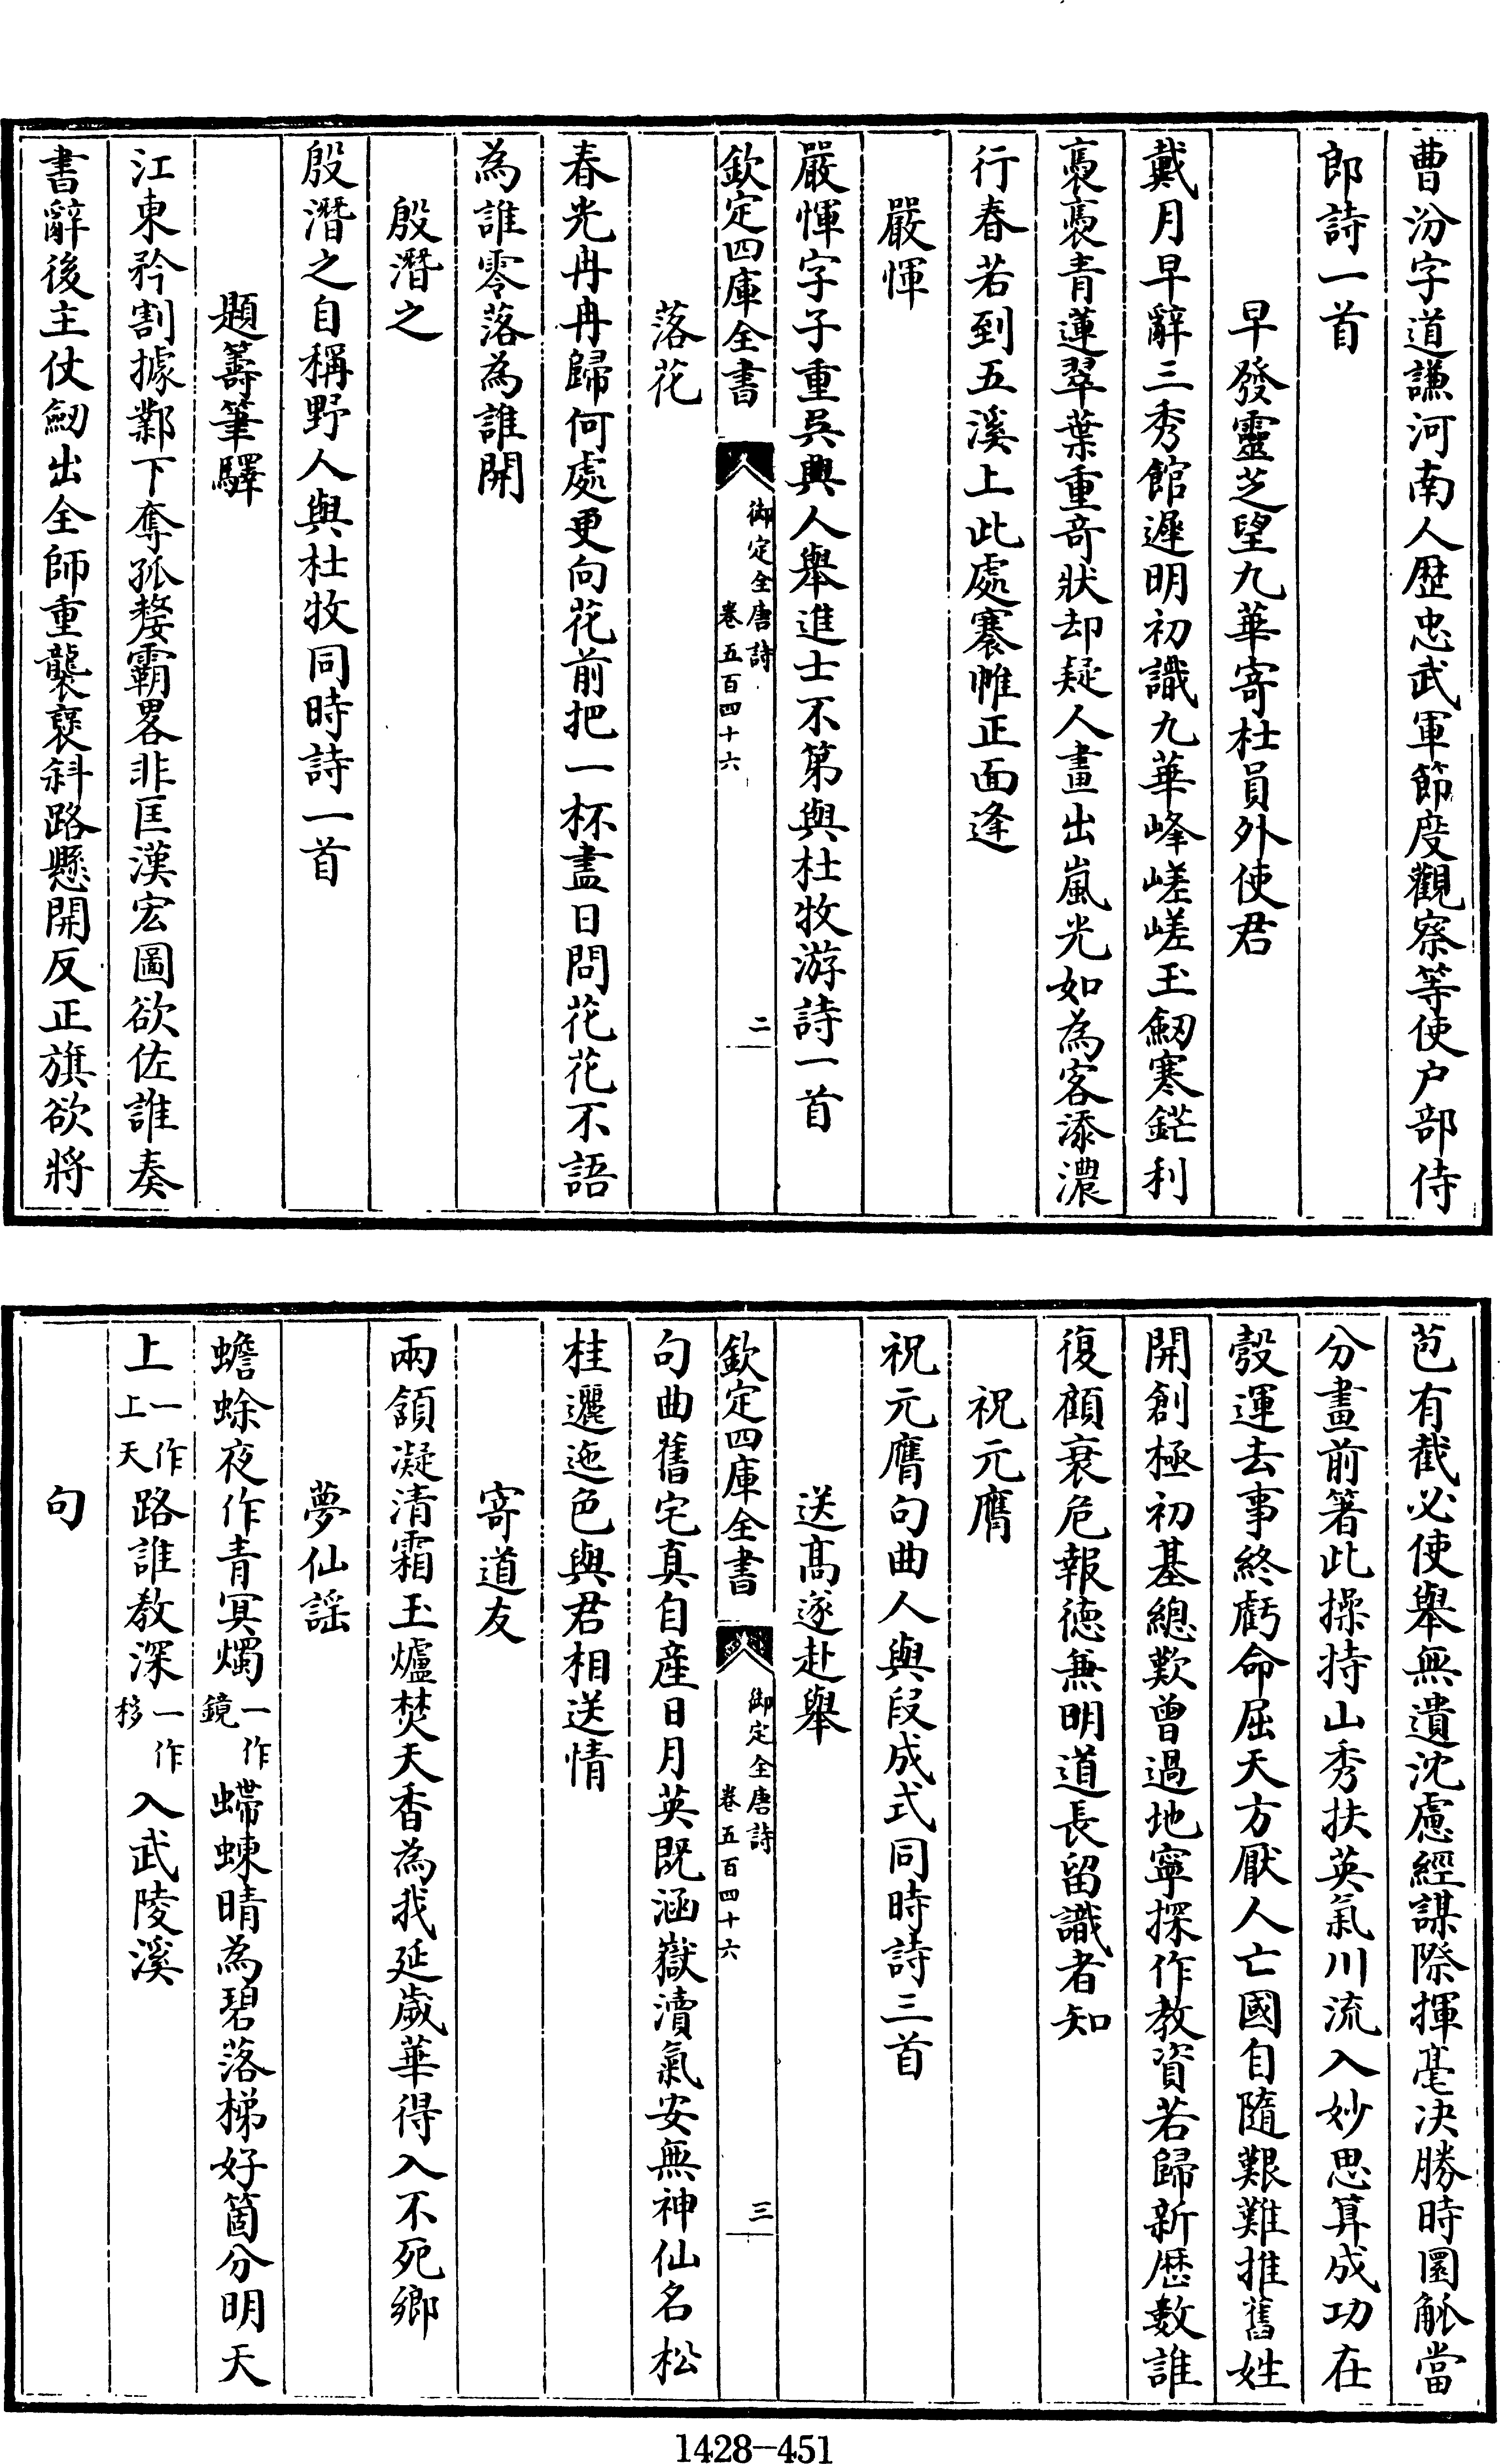 曹汾字道謙河南人歴忠武軍節度觀察等使户部侍
郎詩一首
早發靈芝望九華寄杜員外使君
戴月早辭三秀館遲明初識九華峰嵯嵯玉劒寒鋩利
裊裊青蓮翠葉重竒狀却疑人畫出嵐光如為客添濃
行春若到五溪上此處褰帷正面逢
嚴惲
嚴惲字子重吳興人舉進士不第與杜牧游詩一首
欽定四庫全書
御定全唐詩
卷五百四十六
二
落花
春光冉冉歸何處更向花前把一杯盡日問花花不語
為誰零落為誰開
殷潛之
殷潛之自稱野人與杜牧同時詩一首
題籌筆驛
江東矜割據鄴下奪孤嫠霸畧非匡漢宏圖欲佐誰奏
書辭後主仗劒出全師重襲褒斜路懸開反正旗欲將
苞有截必使舉無遺沈慮經謀際揮毫決勝時圜觚當
分畫前箸此操持山秀扶英氣川流入妙思算成功在
彀運去事終虧命屈天方厭人亡國自隨艱難推舊姓
開創極初基總歎曾過地寧探作教資若歸新歴數誰
復顧衰危報德兼明道長留識者知
祝元膺
祝元膺句曲人與段成式同時詩三首
送髙遂赴舉
欽定四庫全書
御定全唐詩
卷五百四十六
三
句曲舊宅真自産日月英既涵嶽瀆氣安無神仙名松
桂邐迤色與君相送情
寄道友
兩頷凝清霜玉爐焚天香為我延歲華得入不死鄉
夢仙謡
蟾蜍夜作青冥燭一作鏡螮蝀晴為碧落梯好箇分明天
上一作上天路誰教深一作移入武陵溪
句
1428-451